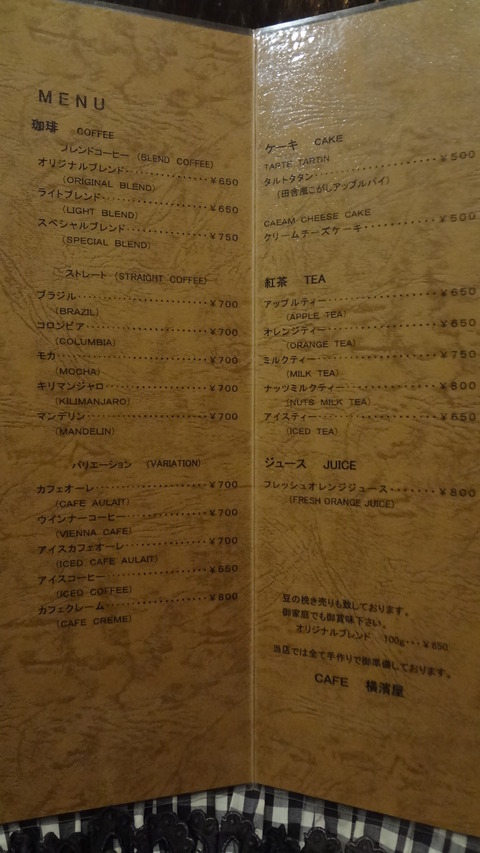 MENU
珈琲 COFFEE
ブレンドコーヒー (BLEND COFFEE)
オリジナルブレンド・・・・・・・・・・・・¥650
(ORIGINAL BLEND)
ライトブレンド・・・・・・・・・・・・¥650
(LIGHT BLEND)
スペシャルブレンド・・・・・・・・・・・・¥750
(SPECIAL BLEND)
ストレート (STRAIGHT COFFEE)
ブラジル・・・・・・・・・・・・¥700
(BRAZIL)
コロンビア・・・・・・・・・・・・¥700
(COLUMBIA)
モカ・・・・・・・・・・・・¥700
(MOCHA)
キリマンジャロ・・・・・・・・・・・・¥700
(KILIMANJARO)
マンデリン・・・・・・・・・・・・¥700
(MANDELIN)
バリエーション (VARIATION)
カフェオーレ・・・・・・・・・・・・¥700
(CAFE AULAIT)
ウインナーコーヒー・・・・・・・・・・・・¥700
(VIENNA CAFE)
アイスカフェオーレ・・・・・・・・・・・・¥700
(ICED CAFE AULAIT)
アイスコーヒー・・・・・・・・・・・・¥650
(ICED COFFEE)
カフェクレーム・・・・・・・・・・・・¥800
(CAFE CREME)
ケーキ CAKE
TAPTE TARTIN
タルトタタン・・・・・・・・・・・・¥500
(田舎風こがしアップルパイ)
CAEAM CHEESE CAKE
クリームチーズケーキ・・・・・・・・・・・・¥500
紅茶 TEA
アップルティー・・・・・・・・・・・・¥650
(APPLE TEA)
オレンジティー・・・・・・・・・・・・¥650
(ORANGE TEA)
ミルクティー・・・・・・・・・・・・¥750
(MILK TEA)
ナッツミルクティー・・・・・・・・・・・・¥800
(NUTS MILK TEA)
アイスティー・・・・・・・・・・・・¥650
(ICED TEA)
ジュース JUICE
フレッシュオレンジジュース・・・・・・・・¥800
(FRESH ORANGE JUICE)
豆の挽き売りも致しております。
御家庭でも御賞味下さい。
オリジナルブレンド 100g・・・¥650
当店では全て手作りで御準備しております。
CAFE 横濱屋